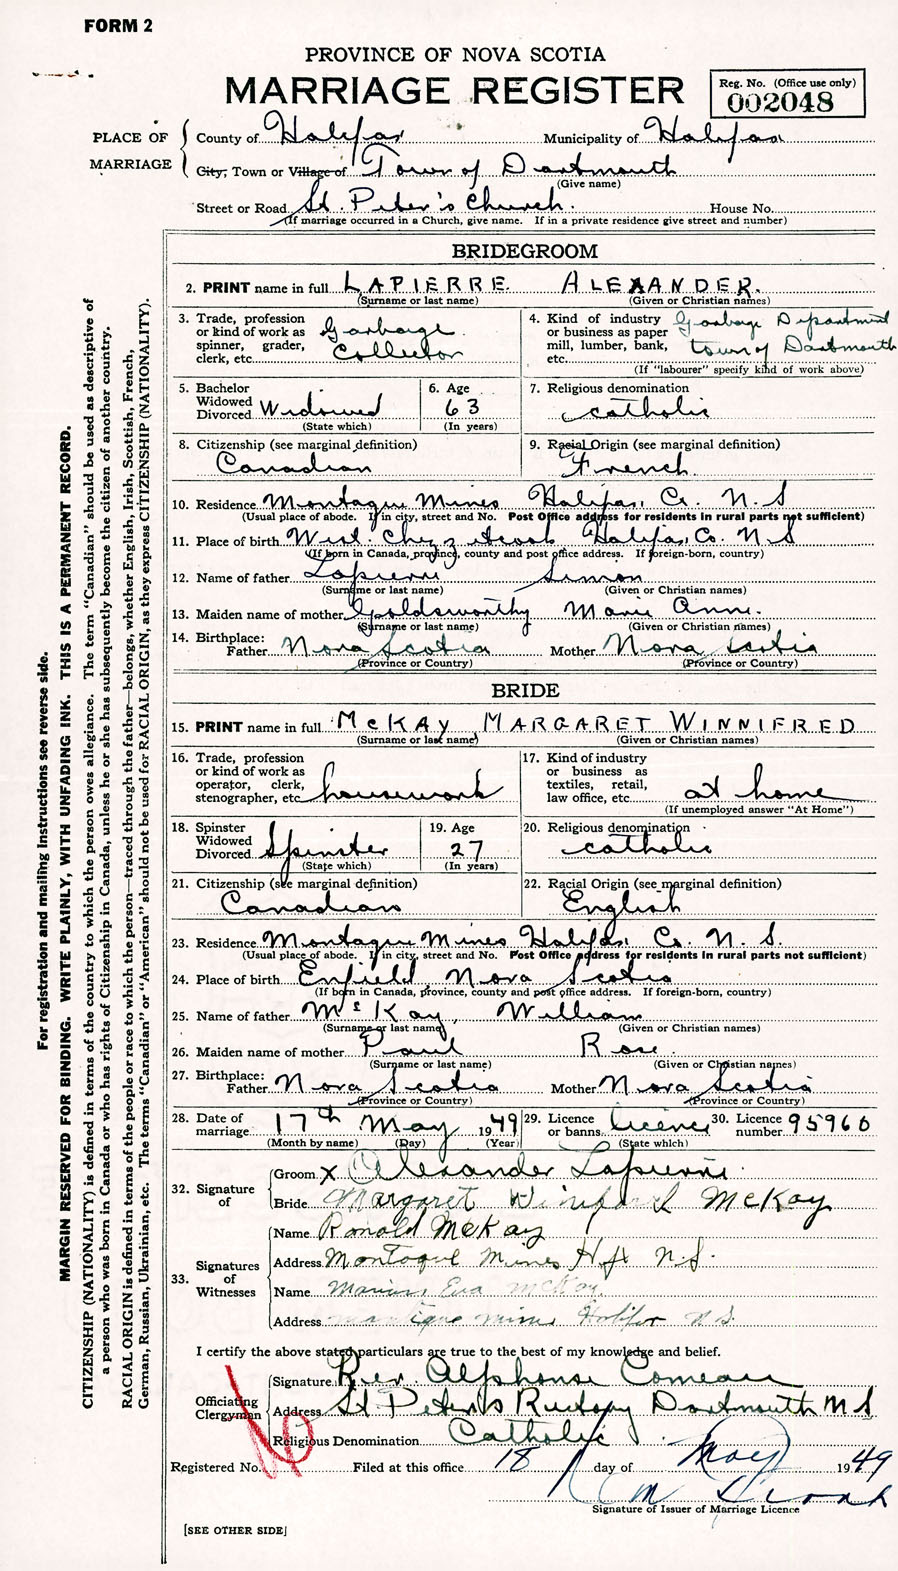 FORM 2
PROVINCE OF NOVA SCOTIA
MARRIAGE REGISTER
Reg. No. (Office use only)
002048
PLACE OF MARRIAGE
County of Halifax Municipality of Halifax
City, Town or Village of Town of Dartmouth
(Give name)
Street or Road St. Peter's Church. House No.
(If marriage occurred in a Church, give name. If in a private residence give street and number)
BRIDEGROOM
2. PRINT name in full LAPIERRE. ALEXANDER.
(Surname or last name) (Given or Christian names)
3. Trade, profession or kind of work as spinner, grader, clerk, etc. Garbage Collector
4. Kind of industry or business as paper mill, lumber, bank, etc. Garbage Department town of Dartmouth
(If "labourer" specify kind of work above)
5. Bachelor Widowed Divorced Widowed
(State which)
6. Age 63
(In years)
7. Religious denomination
catholic
8. Citizenship (see marginal definition)
Canadian
9. Racial Origin (see marginal definition)
French
10. Residence Montague Mines Halifax Co. N. S
(Usual place of abode. If in city, street and No. Post Office address for residents in rural parts not sufficient)
11. Place of birth West Chezzetcook Halifax Co. N S
(If born in Canada, province, county and post office address. If foreign-born, country)
12. Name of father Lapierre Simon
(Surname or last name) (Given or Christian names)
13. Maiden name of mother Goldsworthy Marie Anne.
(Surname or last name) (Given or Christian names)
14. Birthplace: Father Nova Scotia Mother Nova Scotia
(Province or Country) (Province or Country)
BRIDE
15. PRINT name in full McKAY MARGARET WINNIFRED
(Surname or last name) (Given or Christian names)
16. Trade, profession or kind of work as operator, clerk, stenographer, etc. housework
17. Kind of industry or business as textiles, retail, law office, etc. at home
(If unemployed answer "At Home")
18. Spinster Widowed Divorced Spinster
(State which)
19. Age 27
(In years)
20. Religious denomination
catholic
21. Citizenship (see marginal definition)
Canadian
22. Racial Origin (see marginal definition)
English
23. Residence Montague Mines Halifax Co. N. S.
(Usual place of abode. If in city, street and No. Post Office address for residents in rural parts not sufficient)
24. Place of birth Enfield Nova Scotia
(If born in Canada, province, county and post office address. If foreign-born, country)
25. Name of father McKay, William
(Surname or last name) (Given or Christian names)
26. Maiden name of mother Paul Rose
(Surname or last name) (Given or Christian names)
27. Birthplace: Father Nova Scotia Mother Nova Scotia
(Province or Country) (Province or Country)
28. Date of marriage 17th May 1949
(Month by name) (Day) (Year)
29. Licence or banns. licence
(State which)
30. Licence number. 95960
32. Signature of
Groom X Alexander Lapierre
Bride Margaret Winifred McKay
33. Signatures of Witnesses
Name Ronald McKay
Address Montague Mines Hfx N.S.
Name Eva McKay
Address Mines Halifax N S.
I certify the above stated particulars are true to the best of my knowledge and belief.
Officiating Clergyman
Signature Rev. Alphonse Comeau
Address St Peter's Rectory Dartmouth N S
Religious Denomination Catholic
Registered No. Filed at this office 18 day of May 1949
Signature of Issuer of Marriage Licence
[SEE OTHER SIDE]
For registration and mailing instructions see reverse side.
MARGIN RESERVED FOR BINDING. WRITE PLAINLY, WITH UNFADING INK. THIS IS A PERMANENT RECORD.
CITIZENSHIP (NATIONALITY) is defined in terms of the country to which the person owes allegiance. The term "Canadian" should be used as descriptive of
a person who was born in Canada or who has rights of Citizenship in Canada, unless he or she has subsequently become the citizen of another country.
RACIAL ORIGIN is defined in terms of the people or race to which the person—traced through the father—belongs, whether English, Irish, Scottish, French,
German, Russian, Ukrainian, etc. The terms "Canadian" or "American" should not be used for RACIAL ORIGIN, as they express CITIZENSHIP (NATIONALITY).